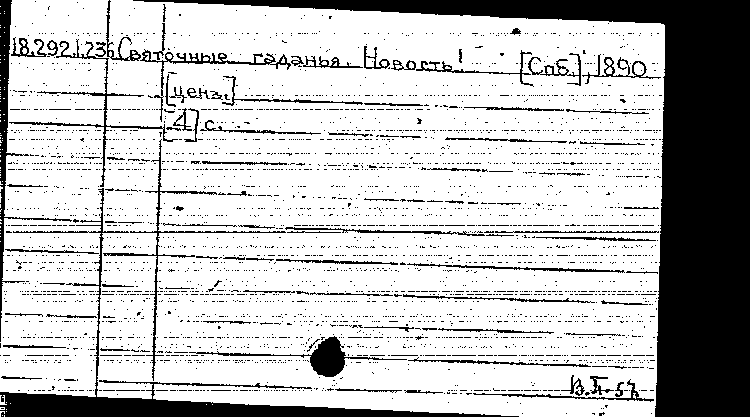 18.292.1.23б Святочные гаданья. Новость! [Спб.], 1890
[ценз.]
[4] с.